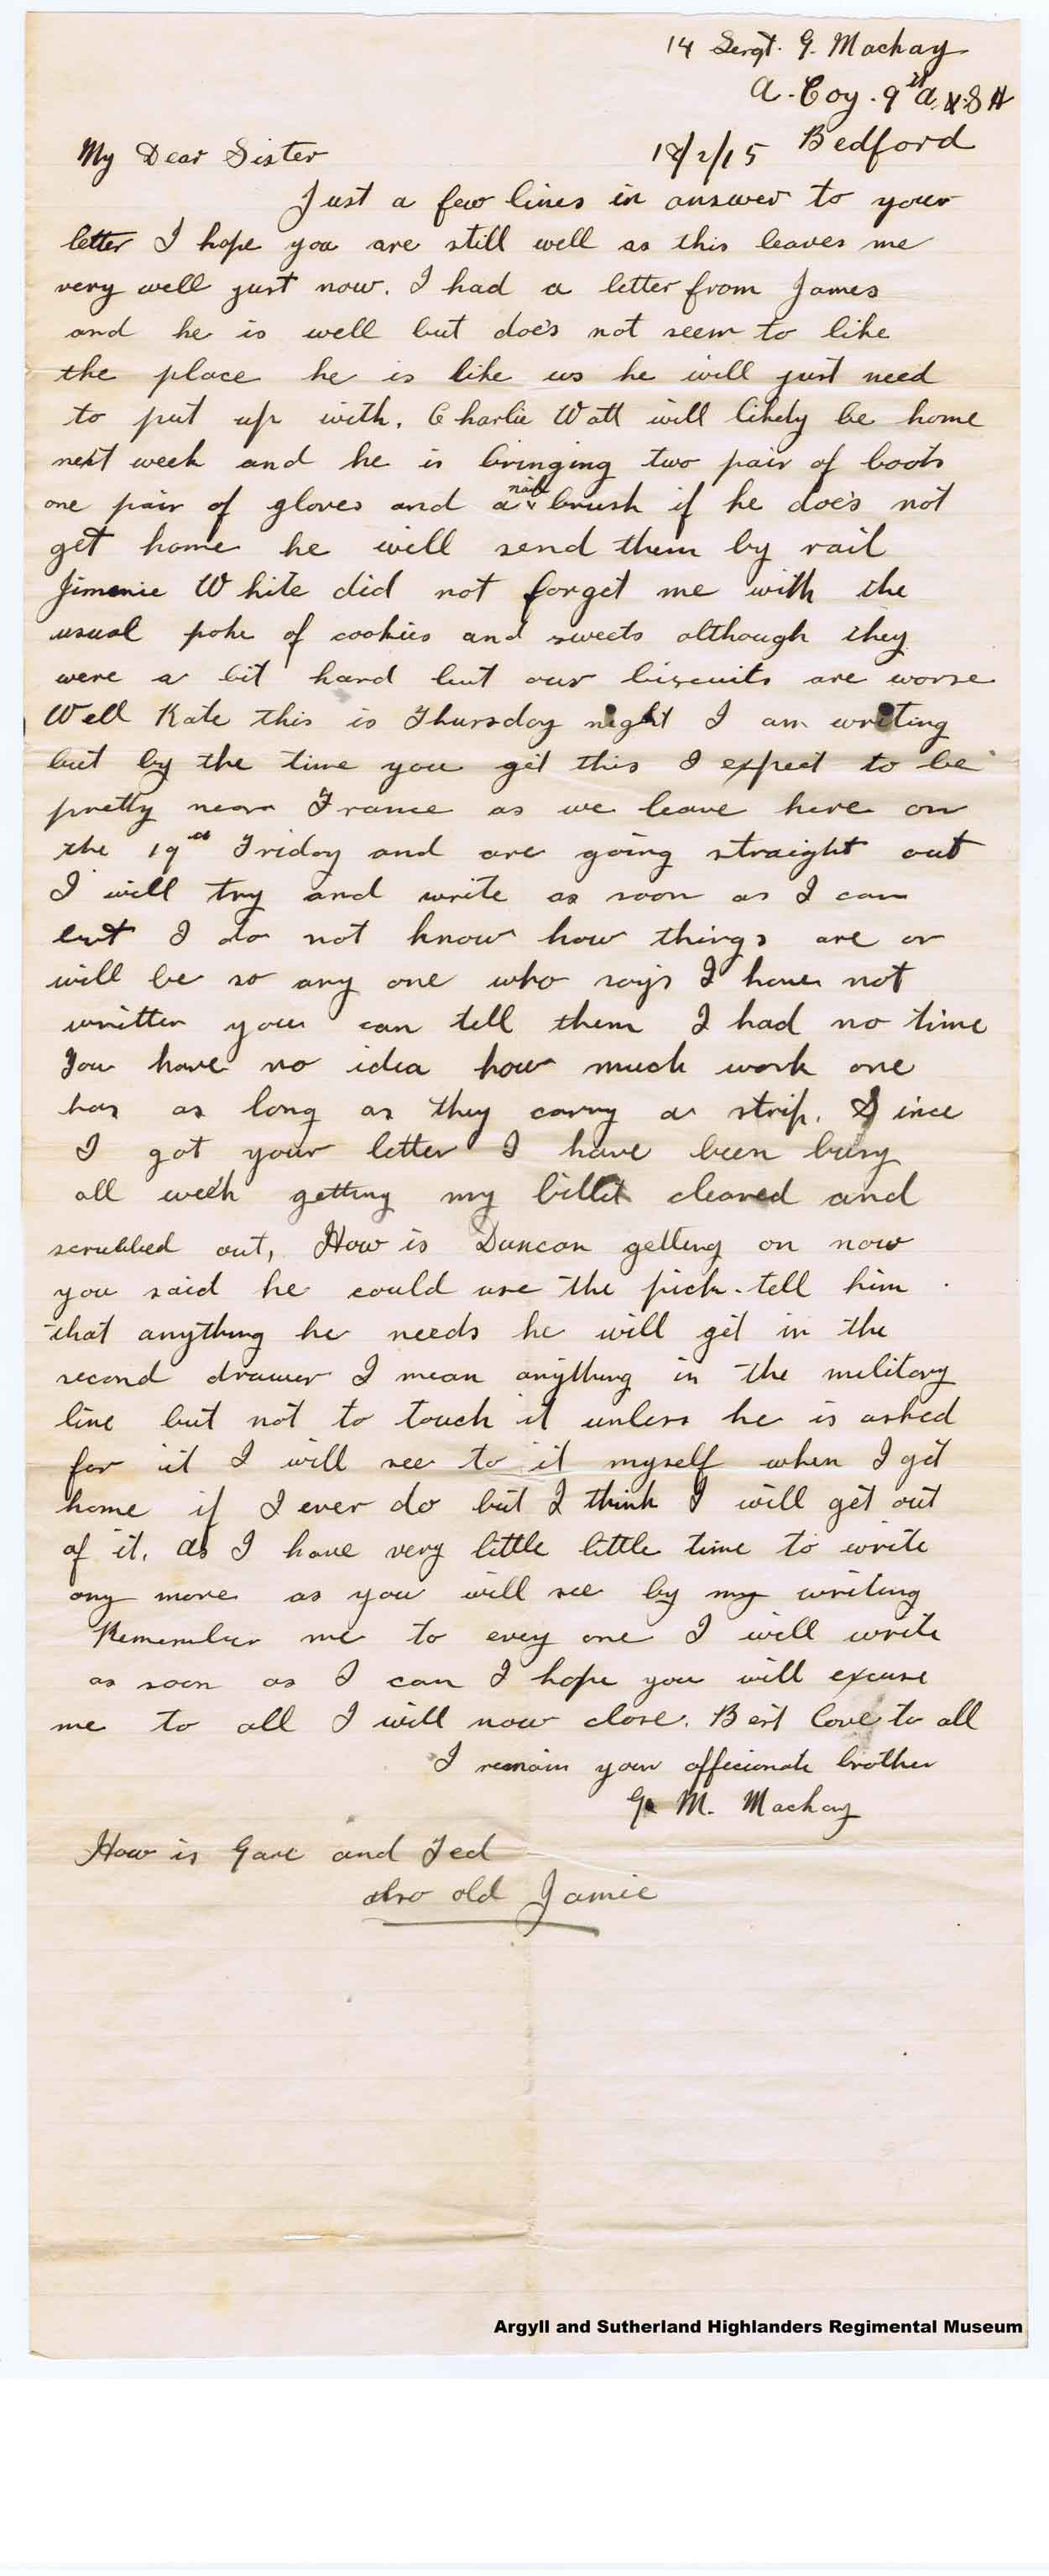 14 Sergt. G. Mackay
A. Coy. 9th A. & S H
Bedford
18/2/15
My Dear Sister
Just a few lines in answer to your
letter I hope you are still well as this leaves me
very well just now. I had a letter from James
and he is well but does not seem to like
the place he is like us he will just need
to put up with. Charlie Watt will likely be home
next week and he is bringing two pair of boots
one pair of gloves and a nail brush if he does not
get home he will send them by rail
Jimmie White did not forget me with the
usual poke of cookies and sweets although they
were a bit hard but our biscuits are worse
Well Kate this is Thursday night I am writing
but by the time you get this I expect to be
pretty near France as we leave here on
the 19th Friday and are going straight out
I will try and write as soon as I can
but I do not know how things are or
will be so any one who says I have not
written you can tell them I had no time
You have no idea how much work one
has as long as they carry a strip. Since
I got your letter I have been busy
all week getting my billet cleaned and
scrubbed out, How is Duncan getting on now
you said he could use the pick. tell him
that anything he needs he will get in the
second drawer I mean anything in the military
line but not to touch it unless he is asked
for it I will see to it myself when I get
home if I ever do but I think I will get out
of it. as I have very little little time to write
any more as you will see by my writing
Remember me to every one I will write
as soon as I can I hope you will excuse
me to all I will now close. Best love to all
I remain your afficionate brother
G. M. Mackay
How is and Ted
also old Jamie
Argyll and Sutherland Highlanders Regimental Museum